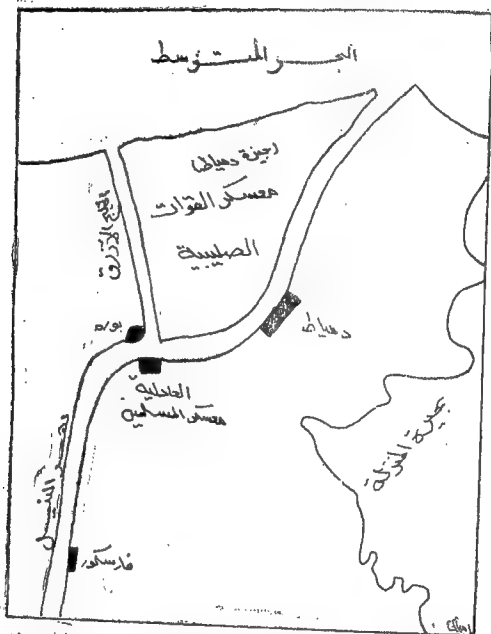 البحر المتوسط
جيزة دمياط
معسكر القوات
الصليبية
الخليج الأزرق
بوره
دمياط
العادلية
معسكر المسلمين
بحيرة المنزلة
نهر النيل
فارسكور